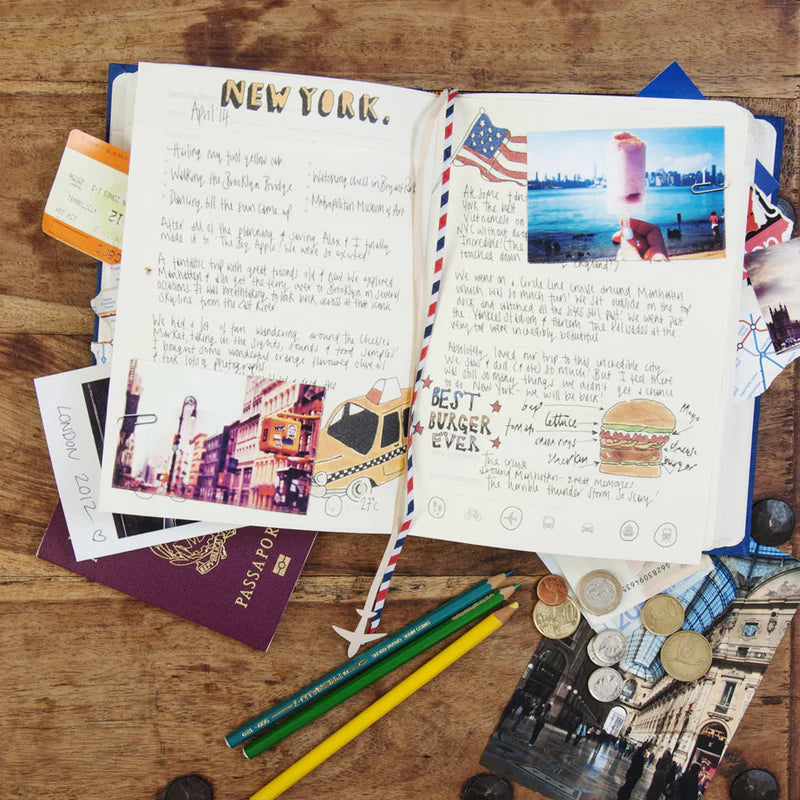 destination
NEW YORK.
date
April 14
Hailing my first yellow cab
Walking the Brooklyn Bridge
Watching chess in Bryant Park
Dancing till the sun came up
Metropolitan Museum of Art
After all of the planning & saving Alex & I finally
made it to 'The Big Apple'! We were so excited!
A fantastic trip with great friends old & new. We explored
Manhattan & also got the ferry over to Brooklyn on several
occasions. It was breathtaking to look back across at that iconic
skyline from the East River
We had a lot of fun wandering around the Chelsea
Market taking in the sights, sounds & food samples!
I bought some wonderful orange flavoured olive oil
& took lots of photographs
27°c
Ate some
York. The best
Vietnamese
NYC without
Incredible! (The
touched down
England!)
We went on a Circle Line Cruise around Manhattan
which was so much fun! We sat outside on the top
deck and watched all the sites sail past. We went past
the Yankee Stadium & Harlem. The Palisades at the
very top were incredibly beautiful
Absolutely loved my trip to this incredible city.
We saw & did (& ate) so much! But I feel there
was still so many things we didn't get a chance
to do New York - we will be back!
BEST
BURGER
EVER
lettuce
onion rings
gherkin
Mayo
cheese
burger
The cruise
around Manhattan - great memories.
The horrible thunder storm so scary!
LONDON 2012
PASSAPORT